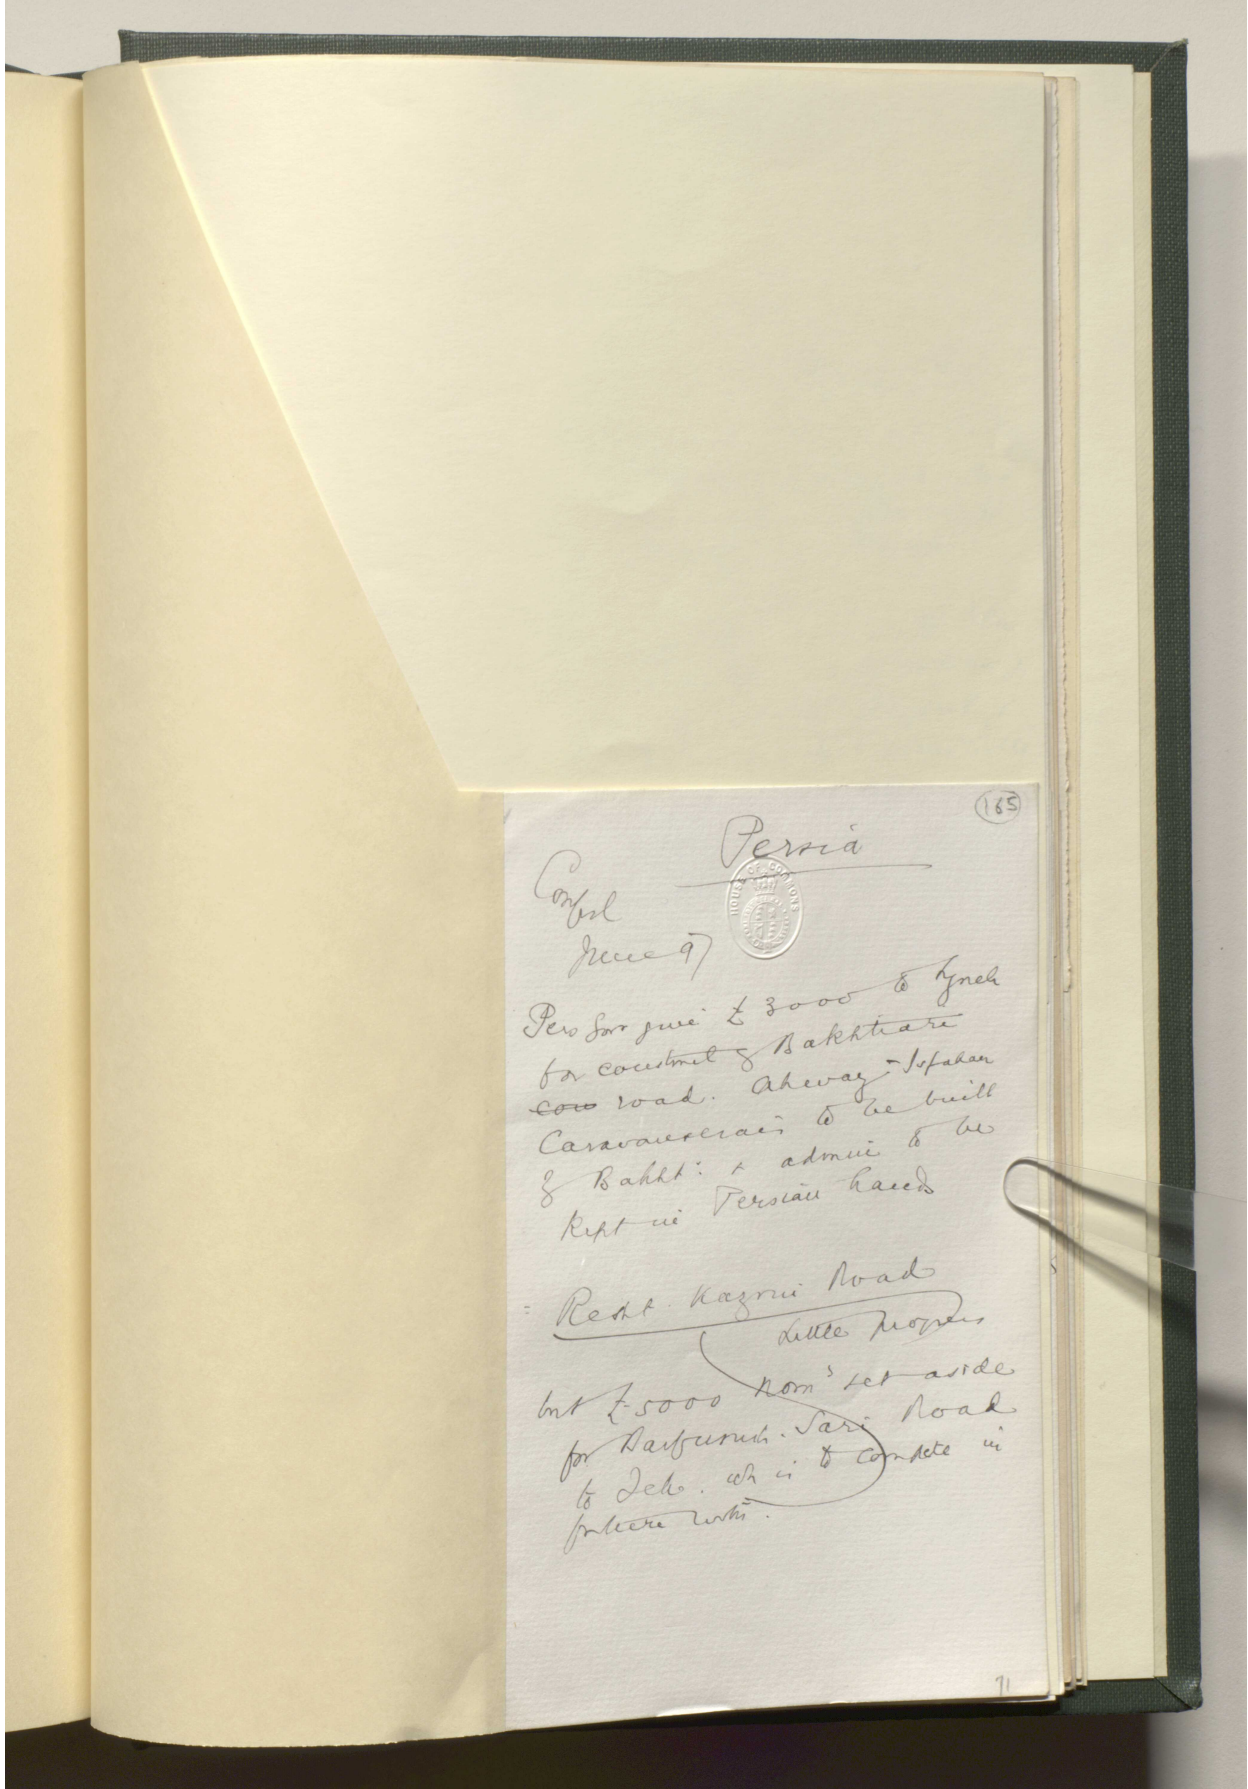 165
Persia
HOUSE OF COMMONS
Confdl
June 97
Pers Govr give £3000 to Lynch
for construct of Bakhtiari
con road. Ahwaz - Isfahan
Caravanserais to be built
of Bakht: & admin to be
kept in Persian hands
Resht. Kazvin Road
Little progress
but £5000 set aside
for Road
to Teh. wh is to compete in
71